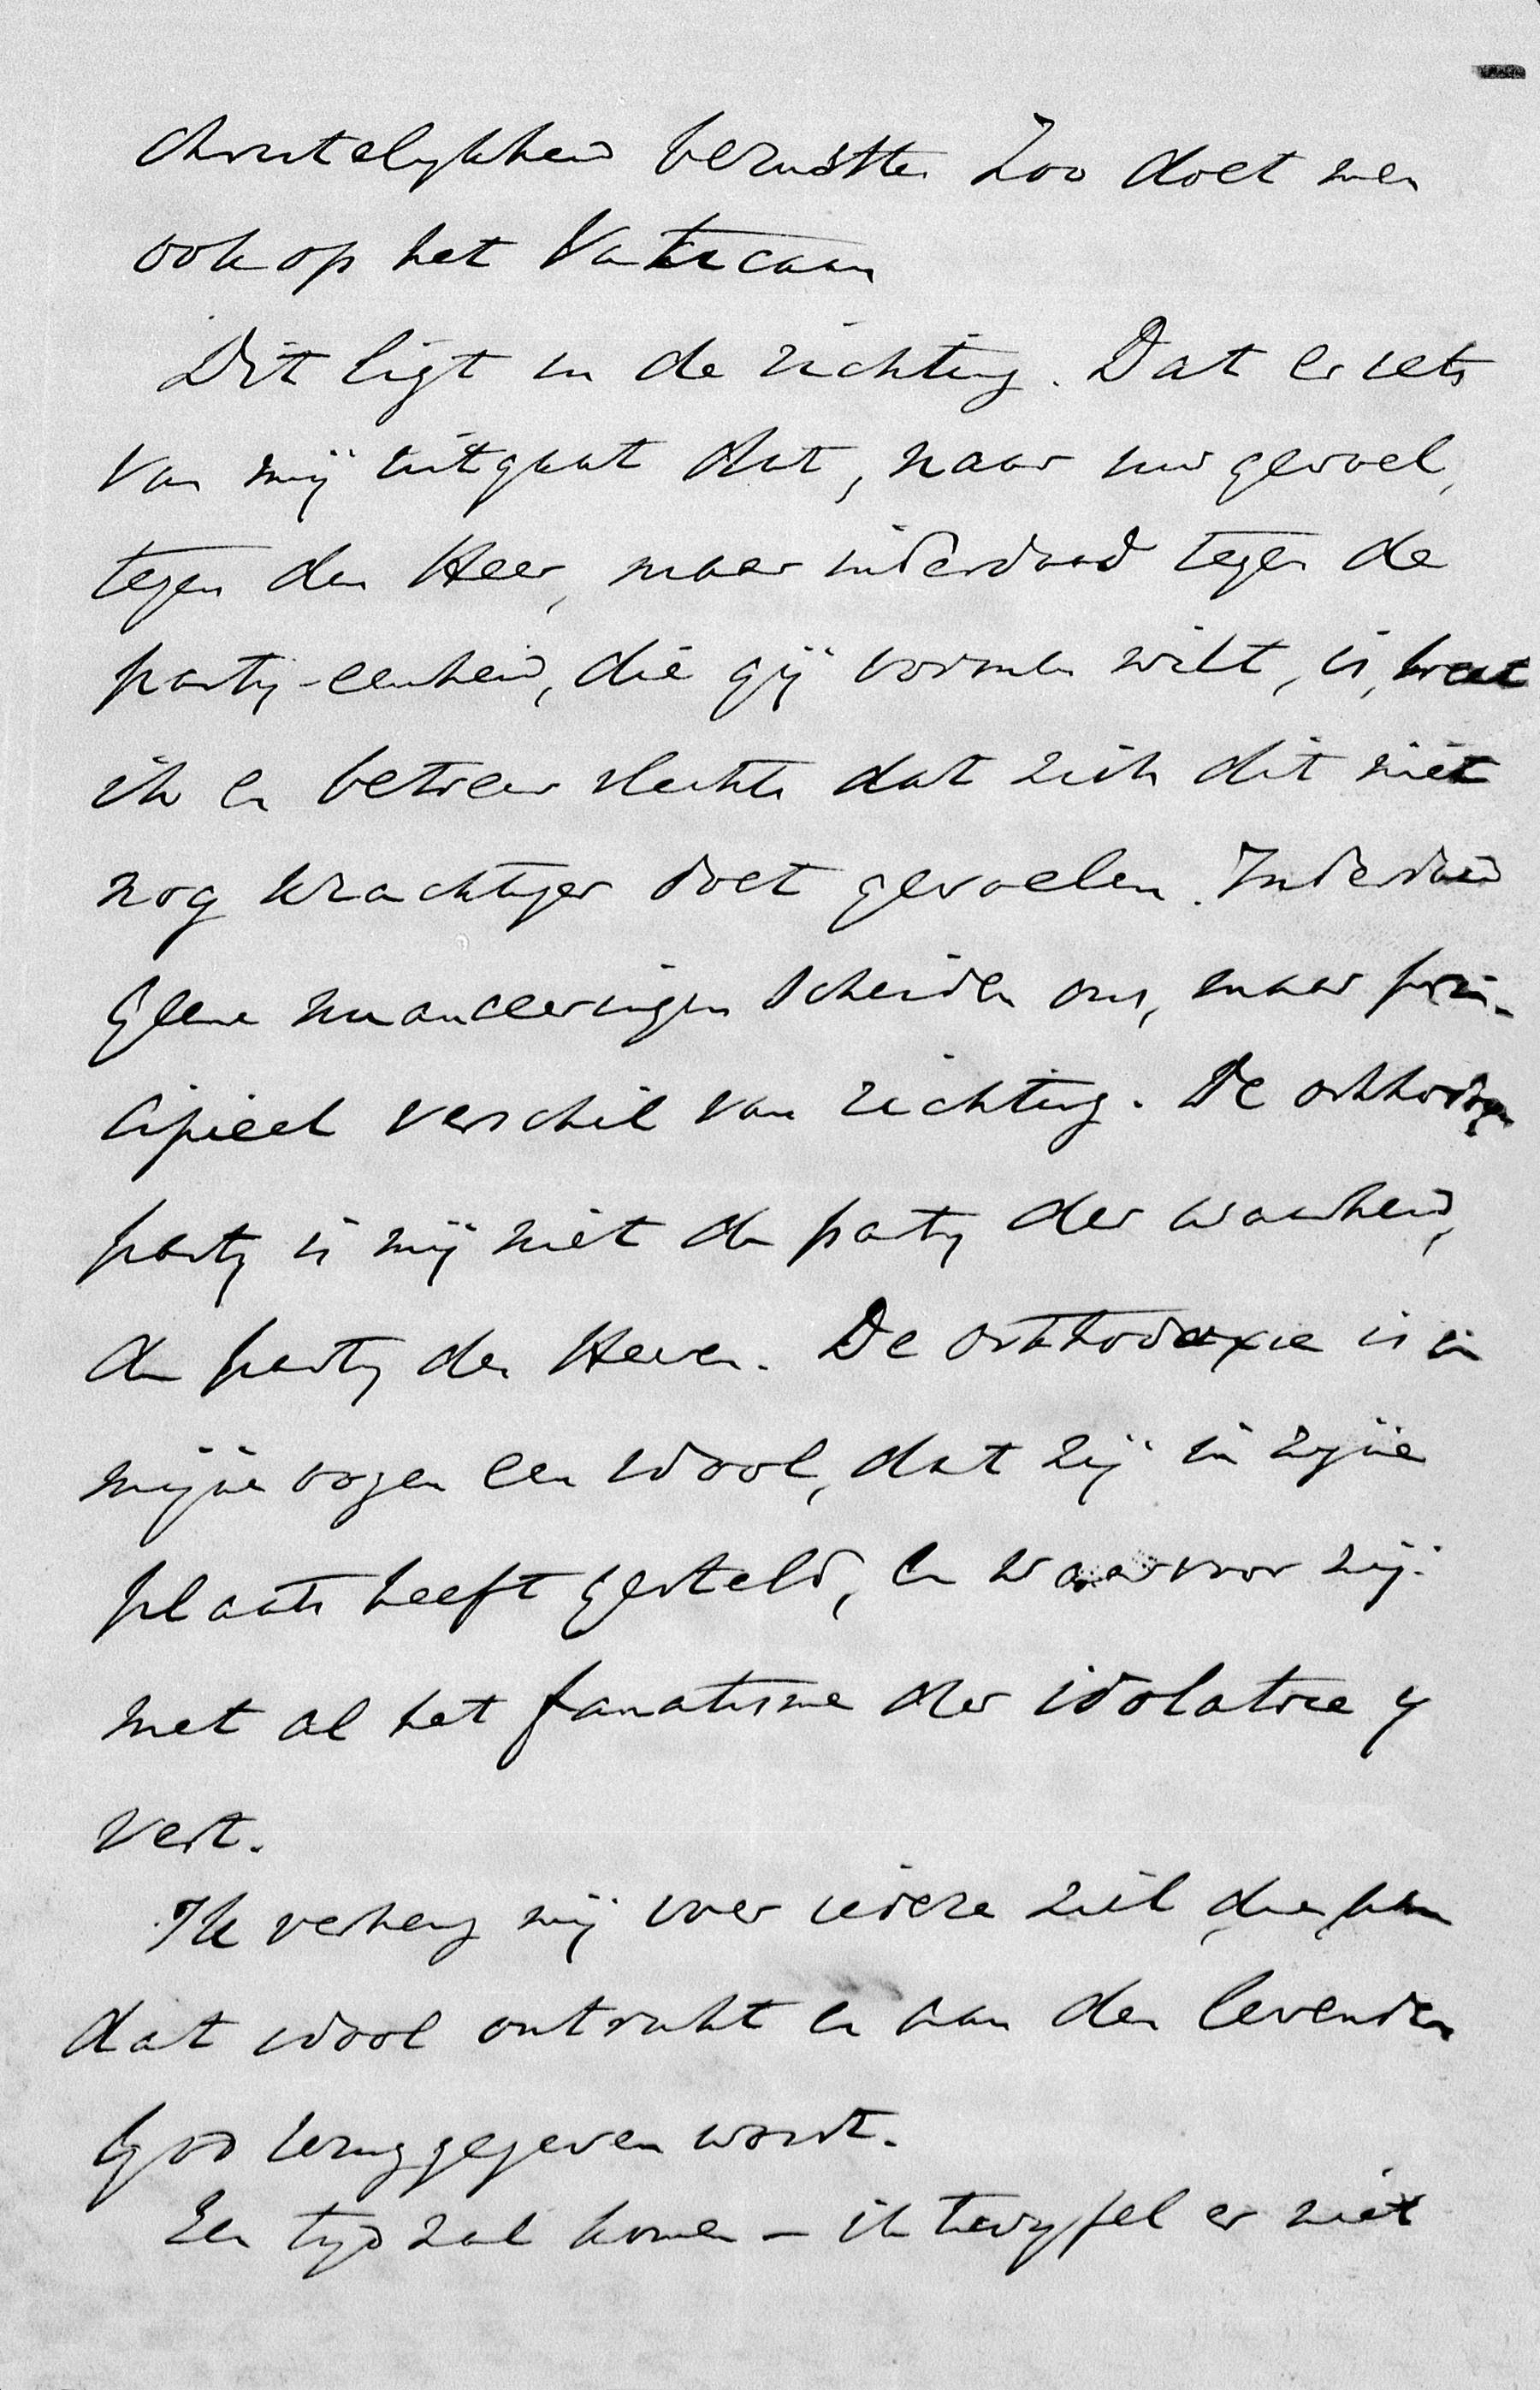 christelykheid berustte Zoo doet men
ook op het Vaticaan
Dit ligt in de richting. Dat er iets
van mij uitgaat dat, naar uw gevoel,
tegen den Heer, maar inderdaad tegen de
party-eenheid, die gij vormen wilt, is, weet
ik en betreur slechts dat zich dit niet
nog krachtiger doet gevoelen. Inderdaad
Geene nuanceeringen scheiden ons, maar prin-
cipieel verschil van richting. De orthodoxe
party is mij niet de party der waarheid,
de party des Heeren. De orthodoxie is in
mijne oogen een idool, dat zij in zijne
plaats heeft gesteld, en waarvoor zij
met al het fanatisme der idolatrie y
vert.
Ik verheug mij over iedere ziel die aan
dat idool ontrukt en aan den levenden
God teruggegeven wordt.
Een tyd zal komen – ik twyfel er niet